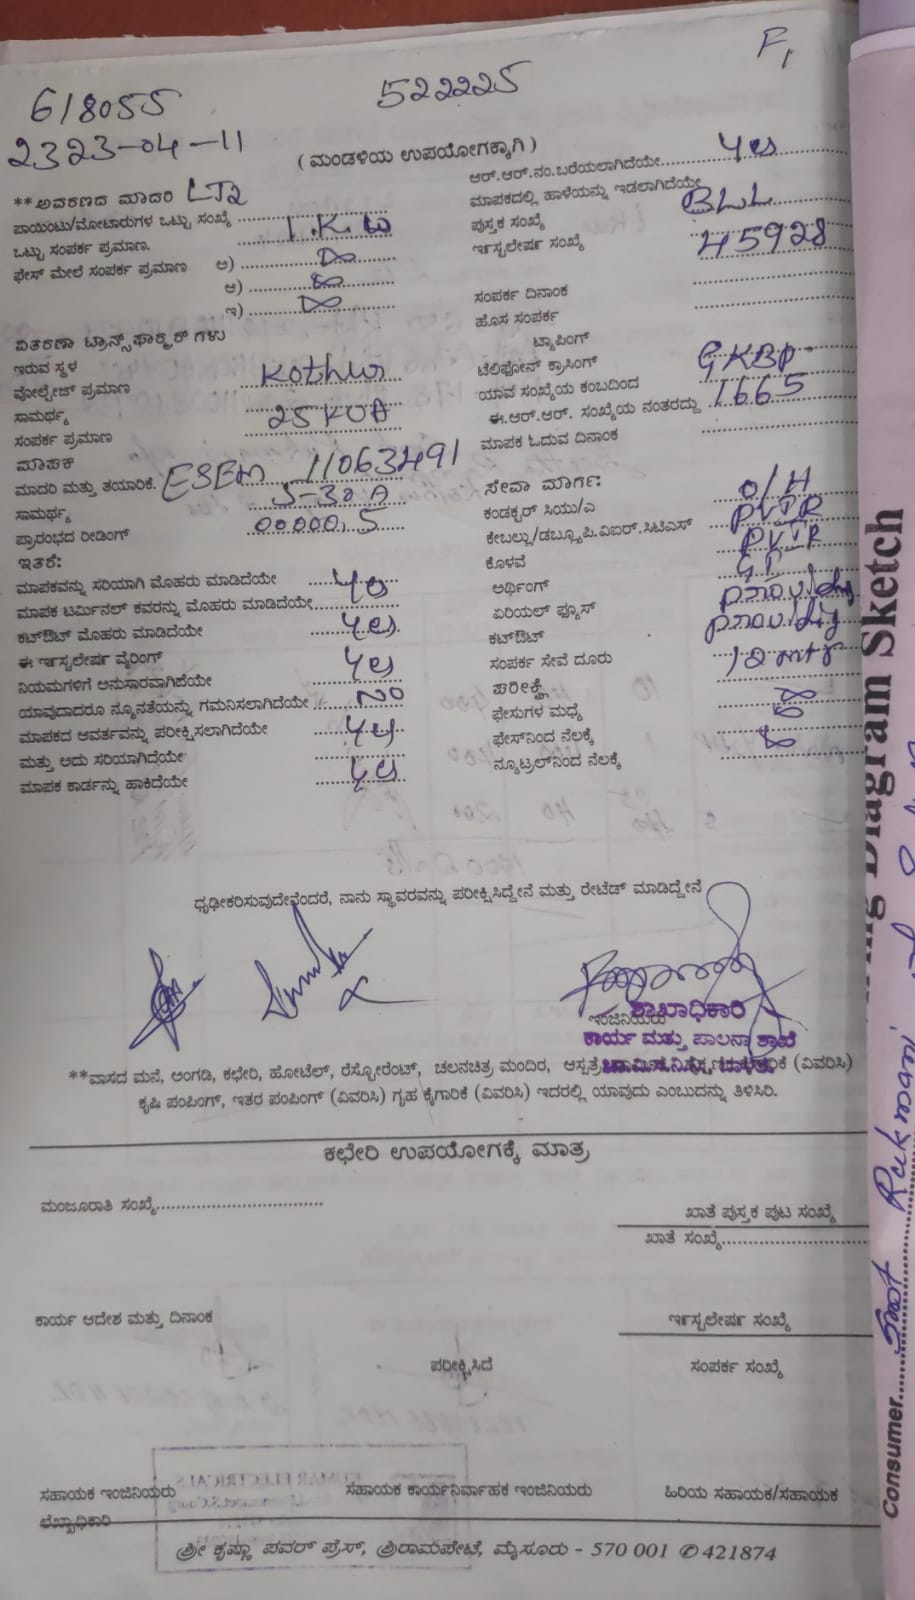 F1
618055
522225
2323-04-11
( ಮಂಡಳಿಯ ಉಪಯೋಗಕ್ಕಾಗಿ )
**ಅವರಣದ ಮಾದರಿ LT2
ಪಾಯಿಂಟು/ಮೋಟಾರುಗಳ ಒಟ್ಟು ಸಂಖ್ಯೆ
ಒಟ್ಟು ಸಂಪರ್ಕ ಪ್ರಮಾಣ. 1.K.W
ಫೇಸ್ ಮೇಲೆ ಸಂಪರ್ಕ ಪ್ರಮಾಣ ಅ)
ಆ)
ಇ)
ವಿತರಣಾ ಟ್ರಾನ್ಸ್‌ಫಾರ್ಮರ್ ಗಳು
ಇರುವ ಸ್ಥಳ Kothur
ವೋಲ್ಟೇಜ್ ಪ್ರಮಾಣ
ಸಾಮರ್ಥ್ಯ 25 KVA
ಸಂಪರ್ಕ ಪ್ರಮಾಣ
ಮಾಪಕ
ಮಾದರಿ ಮತ್ತು ತಯಾರಿಕೆ. ESEM 11063491
ಸಾಮರ್ಥ್ಯ 5-30 A
ಪ್ರಾರಂಭದ ರೀಡಿಂಗ್ 00000.5
ಇತರೆ:
ಮಾಪಕವನ್ನು ಸರಿಯಾಗಿ ಮೊಹರು ಮಾಡಿದೆಯೇ yes
ಮಾಪಕ ಟರ್ಮಿನಲ್ ಕವರನ್ನು ಮೊಹರು ಮಾಡಿದೆಯೇ
ಕಟ್‌ಔಟ್ ಮೊಹರು ಮಾಡಿದೆಯೇ yes
ಈ ಇನ್‌ಸ್ಟಲೇಷನ್ ವೈರಿಂಗ್
ನಿಯಮಗಳಿಗೆ ಅನುಸಾರವಾಗಿದೆಯೇ yes
ಯಾವುದಾದರೂ ನ್ಯೂನತೆಯನ್ನು ಗಮನಿಸಲಾಗಿದೆಯೇ No
ಮಾಪಕದ ಆವರ್ತವನ್ನು ಪರೀಕ್ಷಿಸಲಾಗಿದೆಯೇ yes
ಮತ್ತು ಅದು ಸರಿಯಾಗಿದೆಯೇ
ಮಾಪಕ ಕಾರ್ಡನ್ನು ಹಾಕಿದೆಯೇ yes
ಆರ್.ಆರ್.ನಂ.ಬರೆಯಲಾಗಿದೆಯೇ yes
ಮಾಪಕದಲ್ಲಿ ಹಾಳೆಯನ್ನು ಇಡಲಾಗಿದೆಯೇ
ಪುಸ್ತಕ ಸಂಖ್ಯೆ BLL
ಇನ್‌ಸ್ಟಲೇಷನ್ ಸಂಖ್ಯೆ 45928
ಸಂಪರ್ಕ ದಿನಾಂಕ
ಹೊಸ ಸಂಪರ್ಕ
ಟ್ಯಾಪಿಂಗ್
ಟೆಲಿಫೋನ್ ಕ್ರಾಸಿಂಗ್
ಯಾವ ಸಂಖ್ಯೆಯ ಕಂಬದಿಂದ GKBP
ಈ.ಆರ್.ಆರ್. ಸಂಖ್ಯೆಯ ನಂತರದ್ದು 1665
ಮಾಪಕ ಓದುವ ದಿನಾಂಕ
ಸೇವಾ ಮಾರ್ಗ:
ಕಂಡಕ್ಟರ್ ಸಿಯು/ಎ O/H
ಕೇಬಲ್ಲು/ಡಬ್ಲ್ಯೂ.ಪಿ.ವಿಐರ್.ಸಿಟಿಎಸ್
ಕೊಳವೆ
ಅರ್ಥಿಂಗ್
ಏರಿಯಲ್ ಫ್ಯೂಸ್
ಕಟ್‌ಔಟ್
ಸಂಪರ್ಕ ಸೇವೆ ದೂರು
ಪರೀಕ್ಷೆ
ಫೇಸುಗಳ ಮಧ್ಯೆ
ಫೇಸ್‌ನಿಂದ ನೆಲಕ್ಕೆ
ನ್ಯೂಟ್ರಲ್‌ನಿಂದ ನೆಲಕ್ಕೆ
ಧೃಢೀಕರಿಸುವುದೇನೆಂದರೆ, ನಾನು ಸ್ಥಾವರವನ್ನು ಪರೀಕ್ಷಿಸಿದ್ದೇನೆ ಮತ್ತು ರೇಟೆಡ್ ಮಾಡಿದ್ದೇನೆ
ಇಂಜಿನಿಯರು
ಶಾಖಾಧಿಕಾರಿ
ಕಾರ್ಯ ಮತ್ತು ಪಾಲನಾ ಶಾಖೆ
**ವಾಸದ ಮನೆ, ಅಂಗಡಿ, ಕಛೇರಿ, ಹೋಟೆಲ್, ರೆಸ್ಟೋರೆಂಟ್, ಚಲನಚಿತ್ರ ಮಂದಿರ, ಆಸ್ಪತ್ರೆ (ವಿವರಿಸಿ)
ಕೃಷಿ ಪಂಪಿಂಗ್, ಇತರ ಪಂಪಿಂಗ್ (ವಿವರಿಸಿ) ಗೃಹ ಕೈಗಾರಿಕೆ (ವಿವರಿಸಿ) ಇದರಲ್ಲಿ ಯಾವುದು ಎಂಬುದನ್ನು ತಿಳಿಸಿರಿ.
ಕಛೇರಿ ಉಪಯೋಗಕ್ಕೆ ಮಾತ್ರ
ಮಂಜೂರಾತಿ ಸಂಖ್ಯೆ
ಖಾತೆ ಪುಸ್ತಕ ಪುಟ ಸಂಖ್ಯೆ
ಖಾತೆ ಸಂಖ್ಯೆ
ಕಾರ್ಯ ಆದೇಶ ಮತ್ತು ದಿನಾಂಕ
ಇನ್‌ಸ್ಟಲೇಷನ್ ಸಂಖ್ಯೆ
ಪರೀಕ್ಷಿಸಿದೆ
ಸಂಪರ್ಕ ಸಂಖ್ಯೆ
ಸಹಾಯಕ ಇಂಜಿನಿಯರು
ಸಹಾಯಕ ಕಾರ್ಯನಿರ್ವಾಹಕ ಇಂಜಿನಿಯರು
ಹಿರಿಯ ಸಹಾಯಕ/ಸಹಾಯಕ
ಲೆಖ್ಖಾಧಿಕಾರಿ
ಶ್ರೀ ಕೃಷ್ಣಾ ಪವರ್ ಪ್ರೆಸ್, ಶ್ರೀರಾಮಪೇಟೆ, ಮೈಸೂರು - 570 001 ✆ 421874
Diagram Sketch
Consumer